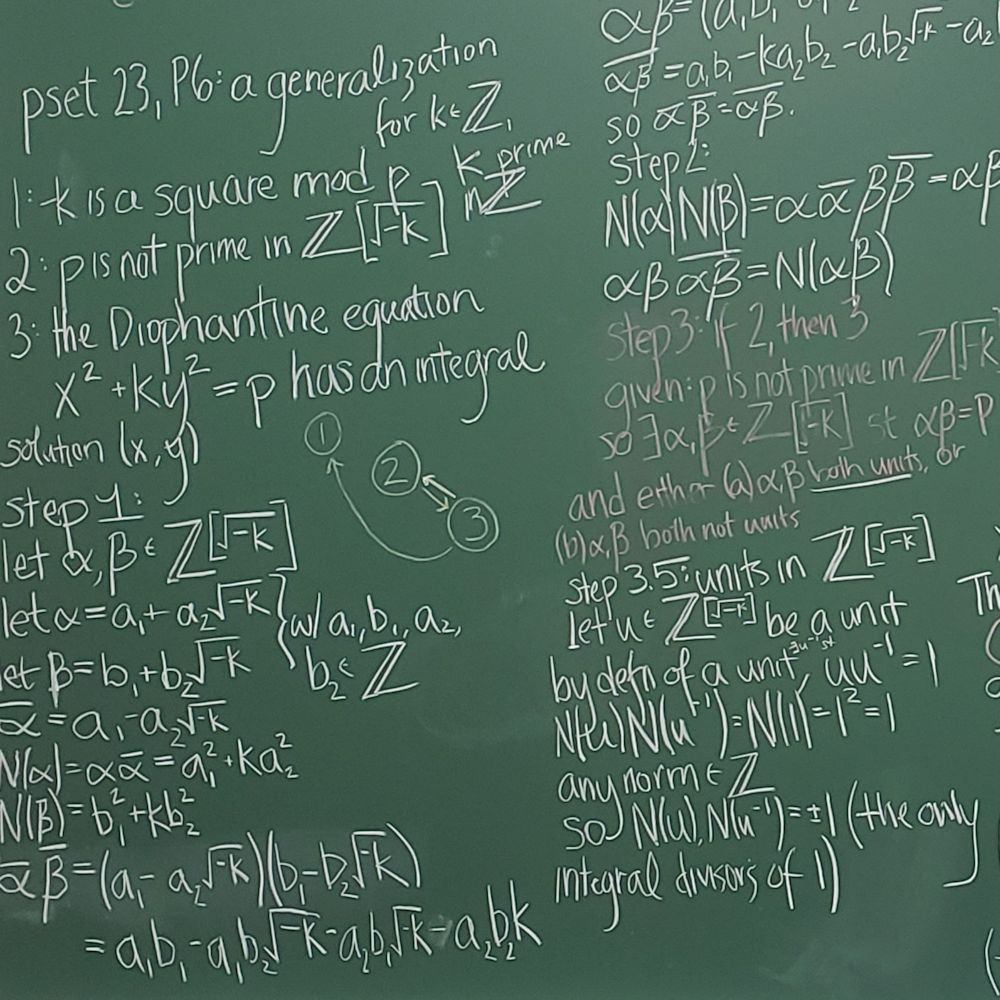 pset 23, P6: a generalization
for k∈ℤ,
k prime
in ℤ
1: -k is a square mod p
2: p is not prime in ℤ[√-k]
3: the Diophantine equation
x² + ky² = p has an integral
solution (x, y)
1
2
3
step 1:
let α, β ∈ ℤ[√-k]
let α = a₁ + a₂√-k } w/ a₁, b₁, a₂,
let β = b₁ + b₂√-k b₂ ∈ ℤ
ᾱ = a₁ - a₂√-k
N(α) = αᾱ = a₁² + ka₂²
N(β) = b₁² + kb₂²
ᾱ β̄ = (a₁ - a₂√-k)(b₁ - b₂√-k)
= a₁b₁ - a₁b₂√-k - a₂b₁√-k - a₂b₂k
αβ = (a₁b₁
α̅β̅ = a₁b₁ - ka₂b₂ - a₁b₂√-k - a₂
so α̅β̅ = ᾱβ̄.
step 2:
N(α)N(β) = αᾱββ̄ = αβ
αβ α̅β̅ = N(αβ)
step 3: if 2, then 3
given: p is not prime in ℤ[√-k
so ∃α, β ∈ ℤ[√-k] st αβ = p
and either (a) α, β both units, or
(b) α, β both not units
step 3.5: units in ℤ[√-k]
Let u ∈ ℤ[√-k] be a unit
by defn of a unit, ∃u⁻¹ st uu⁻¹ = 1
N(u)N(u⁻¹) = N(1) = 1² = 1
any norm ∈ ℤ
so N(u), N(u⁻¹) = ±1 (the only
integral divisors of 1)
Th